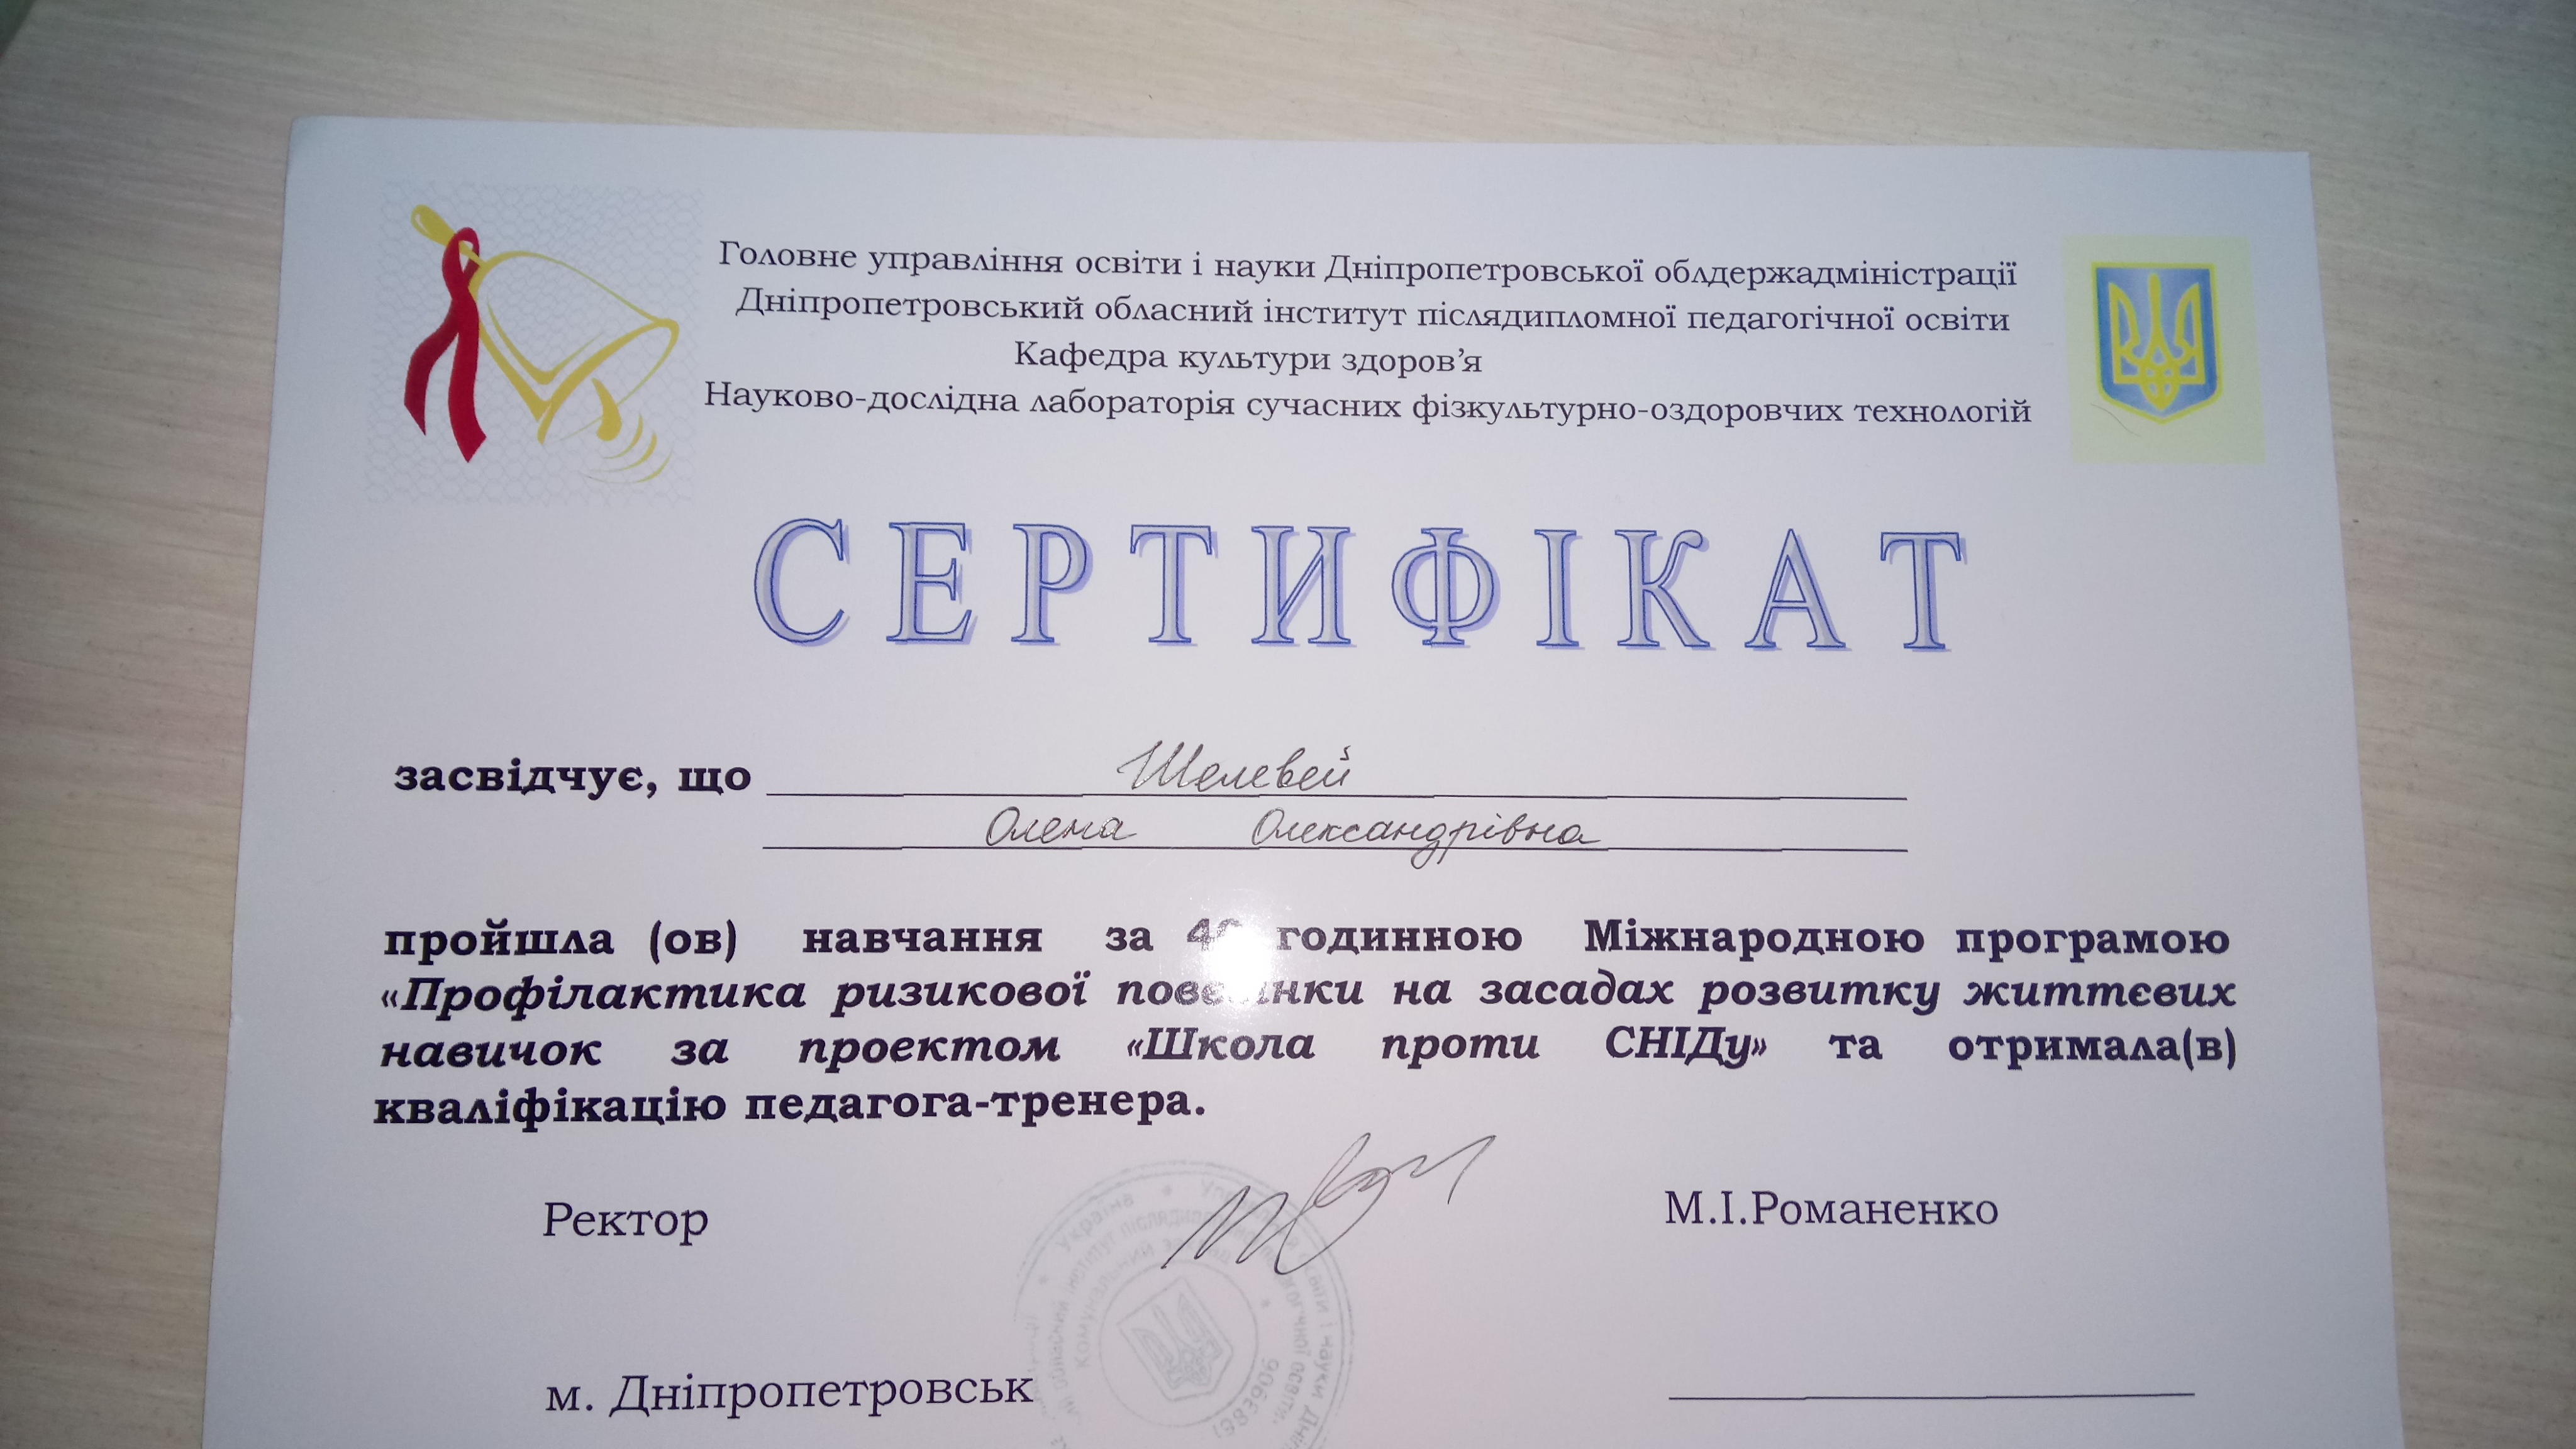 Головне управління освіти і науки Дніпропетровської облдержадміністрації
Дніпропетровський обласний інститут післядипломної педагогічної освіти
Кафедра культури здоров'я
Науково-дослідна лабораторія сучасних фізкультурно-оздоровчих технологій
СЕРТИФІКАТ
засвідчує, що
Олена Олександрівна
пройшла (ов) навчання за годинною Міжнародною програмою
«Профілактика ризикової поведінки на засадах розвитку життєвих
навичок за проектом «Школа проти СНІДу» та отримала(в)
кваліфікацію педагога-тренера.
Ректор М.І.Романенко
м. Дніпропетровськ